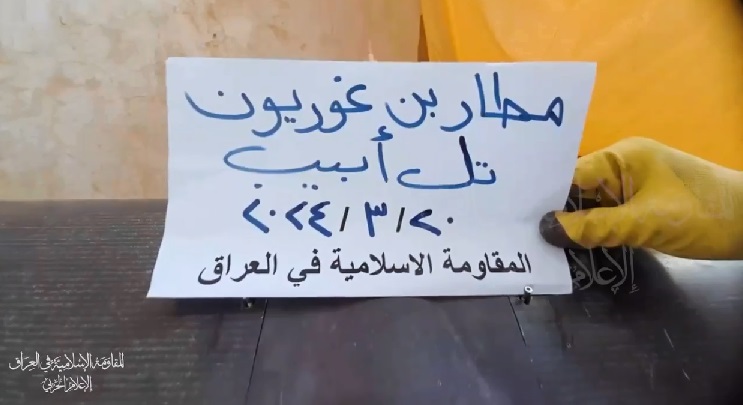 مطار بن غوريون
تل أبيب
٢٠/٣/٢٠٢٤
المقاومة الاسلامية في العراق
المقاومة الإسلامية في العراق
الإعلام الحربي
الإعلام